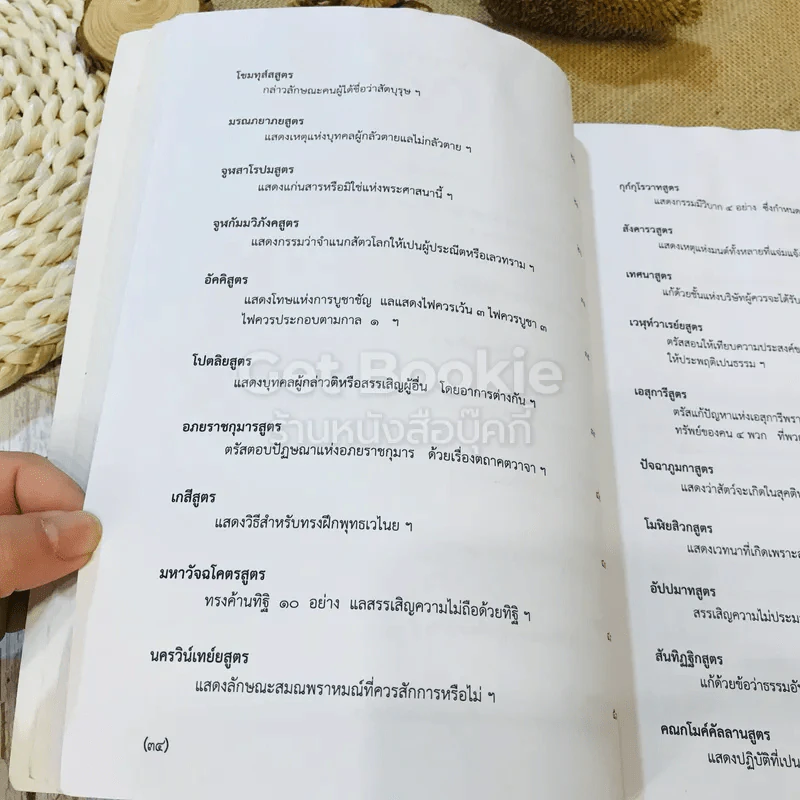 โขมทุสสสูตร
กล่าวลักษณะคนผู้ได้ชื่อว่าสัตบุรุษ ฯ
มรณภยาภยสูตร
แสดงเหตุแห่งบุทคลผู้กลัวตายแลไม่กลัวตาย ฯ
จูฬสาโรปมสูตร
แสดงแก่นสารหรือมิใช่แห่งพระศาสนานี้ ฯ
จูฬกัมมวิภังคสูตร
แสดงกรรมว่าจำแนกสัตวโลกให้เปนผู้ประณีตหรือเลวทราม ฯ
อัคคิสูตร
แสดงโทษแห่งการบูชายัญ แลแสดงไฟควรเว้น ๓ ไฟควรบูชา ๓
ไฟควรประกอบตามกาล ๑ ฯ
โปตลิยสูตร
แสดงบุทคลผู้กล่าวติหรือสรรเสิญผู้อื่น โดยอาการต่างกัน ฯ
อภยราชกุมารสูตร
ตรัสตอบปัฏษณาแห่งอภยราชกุมาร ด้วยเรื่องตถาคตวาจา ฯ
เกสีสูตร
แสดงวิธีสำหรับทรงฝึกพุทธเวไนย ฯ
มหาวัจฉโคตรสูตร
ทรงค้านทิฐิ ๑๐ อย่าง แลสรรเสิญความไม่ถือด้วยทิฐิ ฯ
นครวินเทย์ยสูตร
แสดงลักษณะสมณพราหมณ์ที่ควรสักการหรือไม่ ฯ
(๓๔)
กุก์กุโรวาทสูตร
แสดงกรรมมีวิบาก ๔ อย่าง ซึ่งกำหนด
สังคารวสูตร
แสดงเหตุแห่งมนต์ทั้งหลายที่แจ่มแจ้ง
เทศนาสูตร
แก้ด้วยชั้นแห่งบริษัทผู้ควรจะได้รับ
เวฬุท์วาเรย์ยสูตร
ตรัสสอนให้เทียบความประสงค์ข
ให้ประพฤติเปนธรรม ฯ
เอสุการีสูตร
ตรัสแก้ปัญหาแห่งเอสุการีพรา
ทรัพย์ของคน ๔ พวก ที่พว
ปัจฉาภูมกาสูตร
แสดงว่าสัตว์จะเกิดในสุคติ
โมฬิยสิวกสูตร
แสดงเวทนาที่เกิดเพราะ
อัปปมาทสูตร
สรรเสิญความไม่ประม
สันทิฏฐิกสูตร
แก้ด้วยข้อว่าธรรมอัน
คณกโมค์คัลลานสูตร
แสดงปฏิบัติที่เปน
Get Bookie
ร้านหนังสือบุ๊คกี้